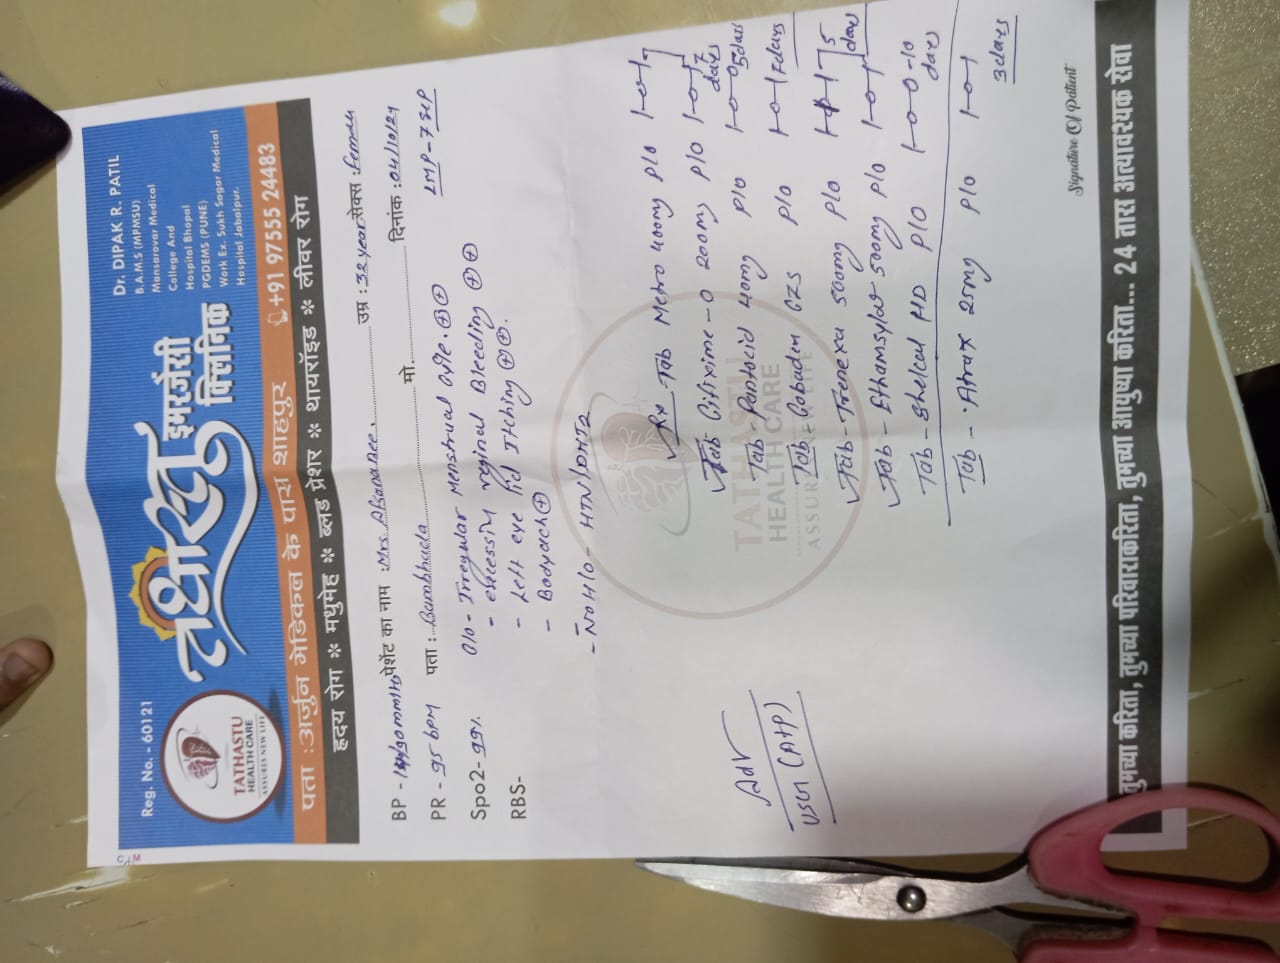 Reg. No. - 60121
TATHASTU
HEALTH CARE
ASSURES NEW LIFE
तथास्तु
इमरजेंसी
क्लिनिक
Dr. DIPAK R. PATIL
B.A.M.S (MPMSU)
Mansarovar Medical
College And
Hospital Bhopal
PGDEMS (PUNE)
Work Ex. Sukh Sagar Medical
Hospital Jabalpur.
पता : अर्जुन मेडिकल के पास शाहपुर
+91 97555 24483
हृदय रोग * मधुमेह * ब्लड प्रेशर * थायरॉइड * लीवर रोग
पेशेंट का नाम : Mrs. उम्र : 32 year सेक्स : female
BP - /90 mmHg
PR - 95 bpm पता : Bambhada मो. दिनांक : 04/10/24
Spo2- 99%
RBS-
LMP - 7 Sep
O/o - Irregular menstrual cycle. ⊕⊕
- excessive veginal Bleeding ⊕⊕
- Left eye lid Itching ⊕⊕.
- Bodyach ⊕
- No H/o - HTN/DM
Adv
USG (A+P)
Rx - Tab Metro 400mg P/o 1-0-1
Tab Cifixime-O 200mg P/o 1-0-1 7 days
Tab - Pantocid 40mg P/o 1-0-0 5 days
Tab Gabaden P/o 1-0-1 7 days
Tab - Trenexa 500mg P/o 5 days
Tab - Ethamsylat 500mg P/o 1-0-1
Tab - Shelcal HD P/o 1-0-0 -10 days
Tab - Atrax 25mg P/o 1-0-1
3 days
TATHASTU
HEALTH CARE
ASSURES NEW LIFE
Signature Of Patient
तुमच्या करिता, तुमच्या परिवाराकरिता, तुमच्या आयुष्या करिता... 24 तास अत्यावश्यक सेवा
C M